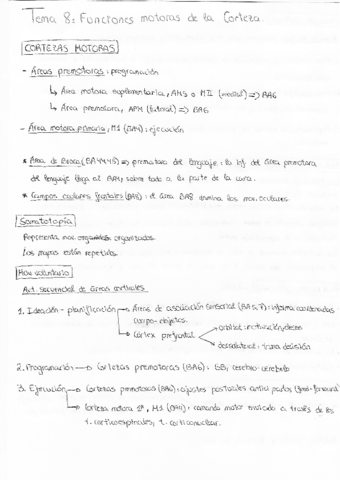 Tema 8: Funciones motoras de la Corteza.
CORTEZAS MOTORAS
- Áreas premotoras: programación
↳ Área motora suplementaria, AMS o MII (medial) => BA6
↳ Área premotora, APM (lateral) => BA6
- Área motora primaria, M1 (BA4): ejecución
* Área de Broca (BA44/45) => premotora del lenguaje: la inf. del área premotora
del lenguaje llega al BA4, sobre todo a la parte de la cara.
* Campos oculares frontales (BA8): el área BA8 domina los mov. oculares.
Somatotopía
Representa mov. organizados.
Los mapas están repetidos.
Mov. voluntario
Act. secuencial de áreas corticales
1. Ideación - planificación → Áreas de asociación sensorial (BA5, 7): informa coordenadas
cuerpo - objetos.
→ Córtex prefrontal
orbital: motivación/deseo
dorsolateral: toma decisión
2. Programación → Cortezas premotoras (BA6): GB, cerebro-cerebelo
3. Ejecución → Cortezas premotoras (BA6): ajustes posturales anticipados (feed-forward)
→ Corteza motora 1ª, M1 (BA4): comando motor enviado a través de los
t. corticoespinales, t. corticonuclear.